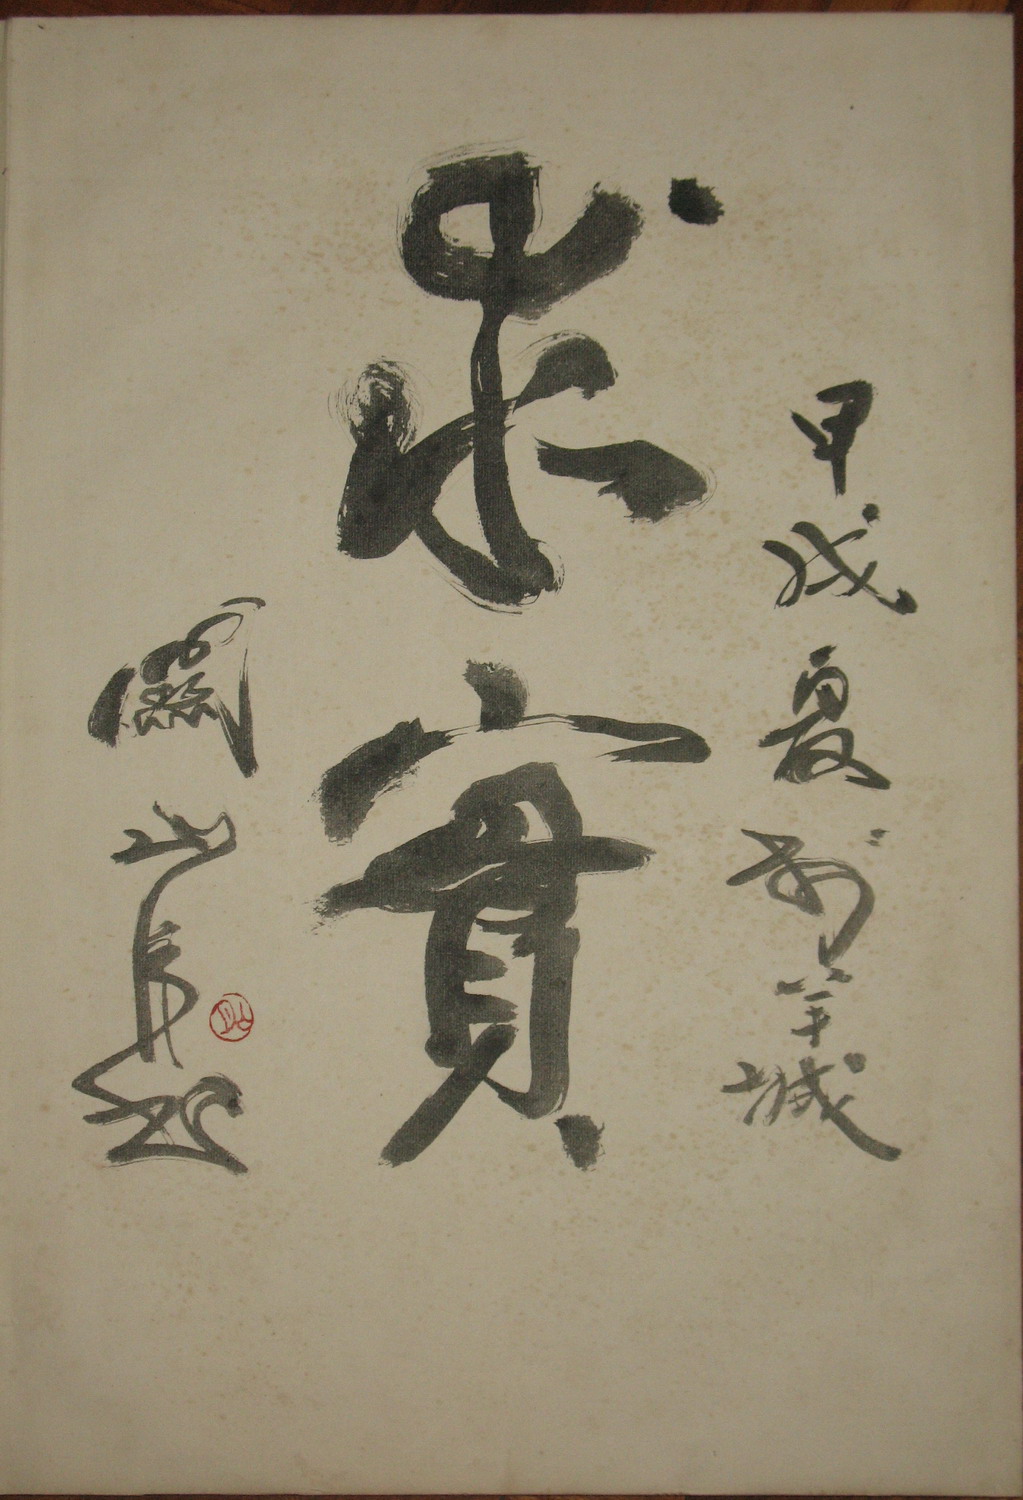 甲戌夏於羊城
求實
關山月題